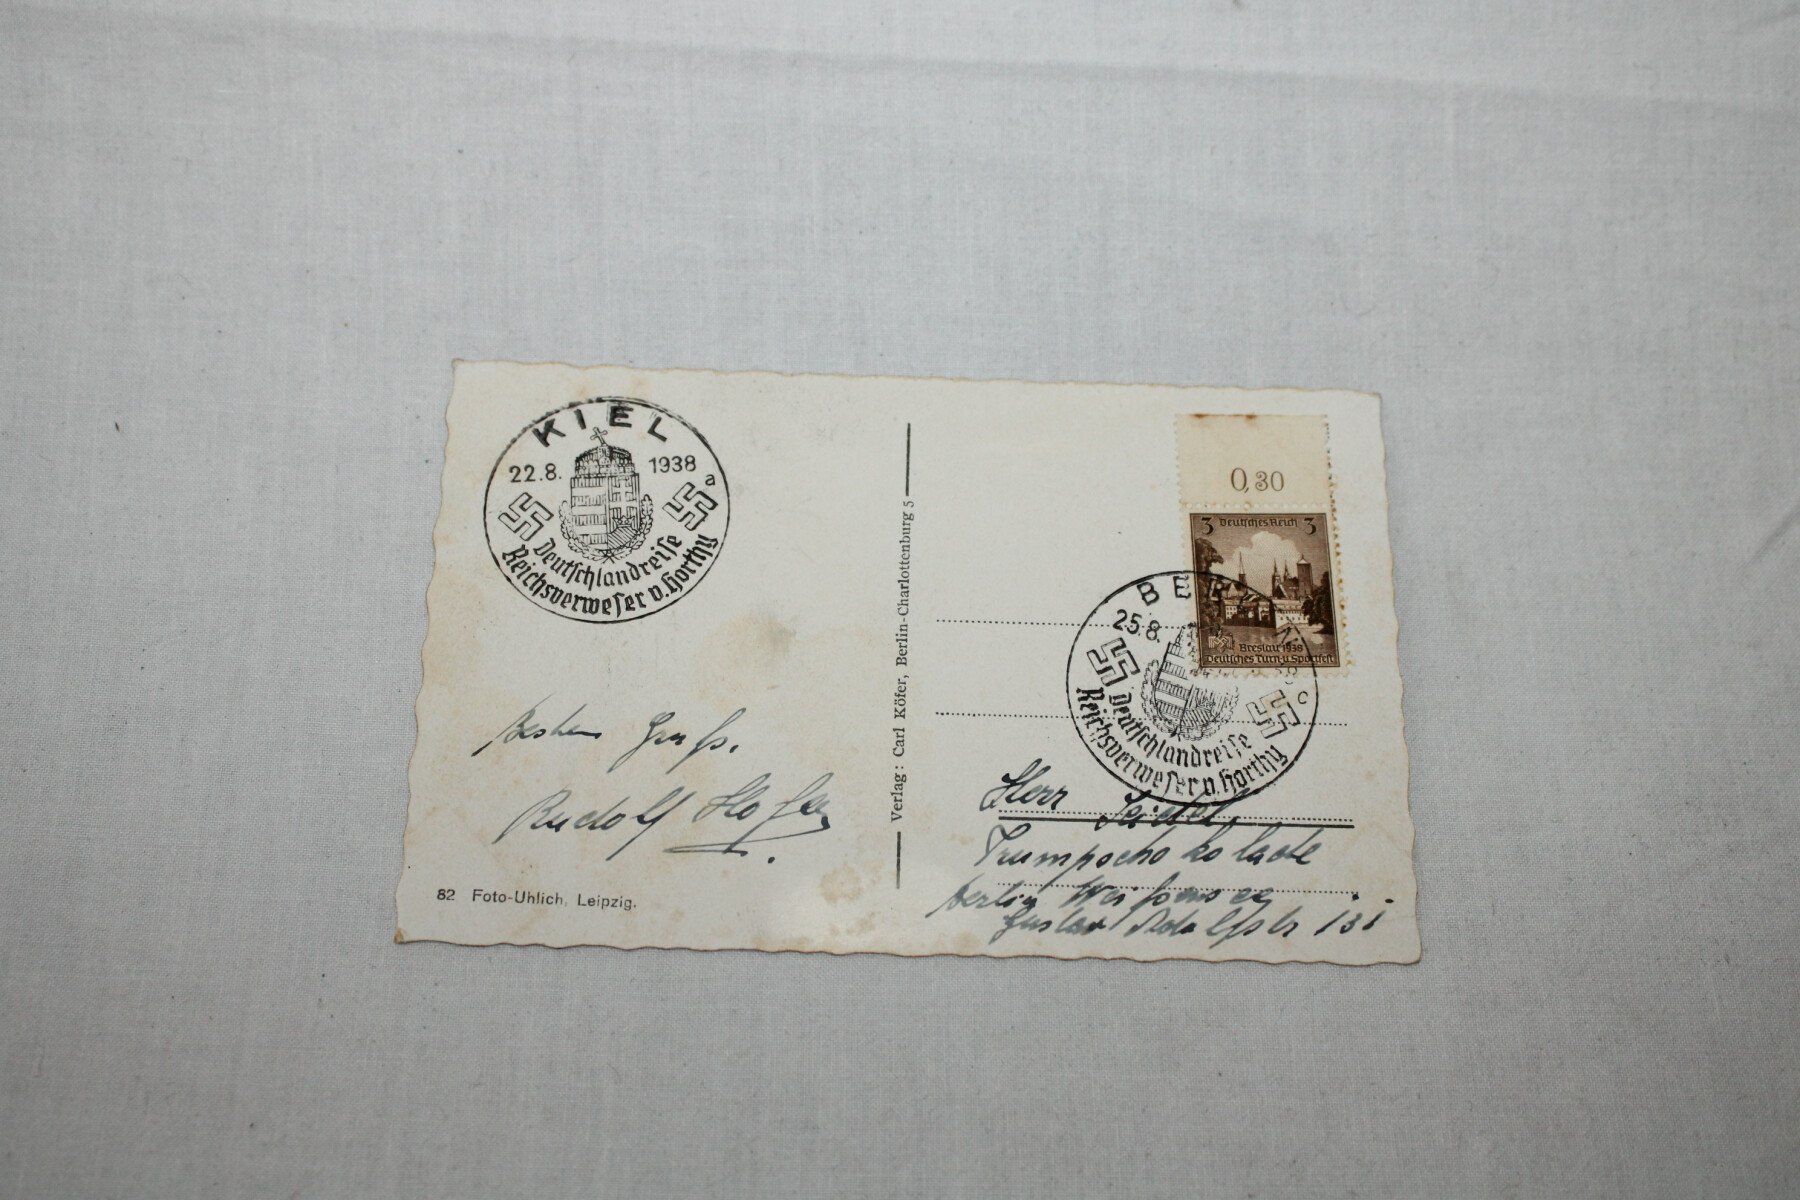 KIEL
22.8. 1938
a
Deutschlandreise
Reichsverweser v. Horthy
Besten Gruß.
Rudolf
82 Foto-Uhlich, Leipzig.
Verlag: Carl Köfer, Berlin-Charlottenburg 5
0,30
3 Deutsches Reich 3
Breslau 1938
Deutsches Turn-u. Sportfest
BERLIN
25.8.
c
Deutschlandreise
Reichsverweser v. Horthy
Herr Seidel,
Trumpschokolade
Berlin Weißensee
Gustav Adolfstr